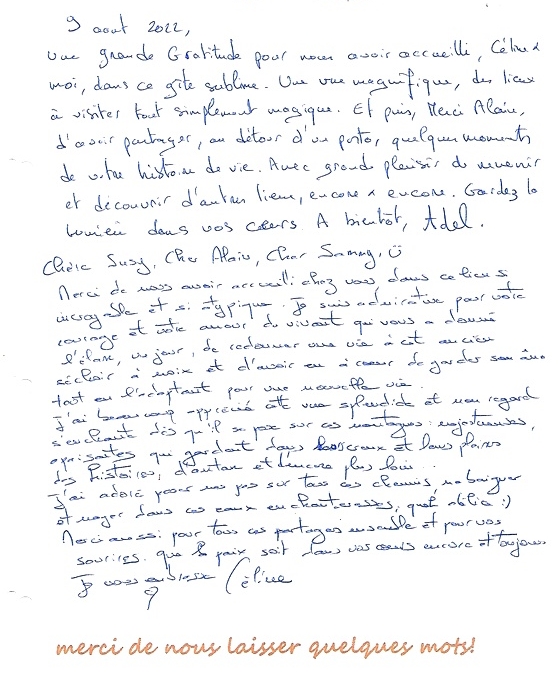 9 août 2022,
une grande Gratitude pour nous avoir accueilli, Céline &
moi, dans ce gîte sublime. Une vue magnifique, des lieux
à visiter tout simplement magique. Et puis, Merci Alain,
d'avoir partager, au détour d'un porto, quelques moments
de votre histoire de vie. Avec grand plaisir de revenir
et découvrir d'autres lieux, encore & encore. Gardez la
lumière dans vos cœurs A bientôt, Adel.
Chère Susy, Cher Alain, Cher Sammy, ☺
Merci de nous avoir accueilli chez vous, dans ce lieu si
incroyable et si atypique. Je suis admirative pour votre
courage et votre amour du vivant qui vous a donné
l'élan, un jour, de redonner une vie à cet ancien
séchoir à noix et d'avoir eu à cœur de garder son âme
tout en l'adaptant pour une nouvelle vie.
J'ai beaucoup apprécié cette vue splendide et mon regard
s'enchantait dès qu'il se pose sur ces montagnes majestueuses,
apaisantes qui gardent dans et leurs plaines
des histoires, d'antan et d'encore plus loin...
J'ai adoré poser mes pas sur tous ces chemins, me baigner
et nager dans ces eaux enchanteresses, quel délice :)
Merci aussi pour tous ces partages ensemble et pour vos
sourires. que la paix soit dans vos cœurs encore et toujours
Je vous embrasse Céline
merci de nous laisser quelques mots!